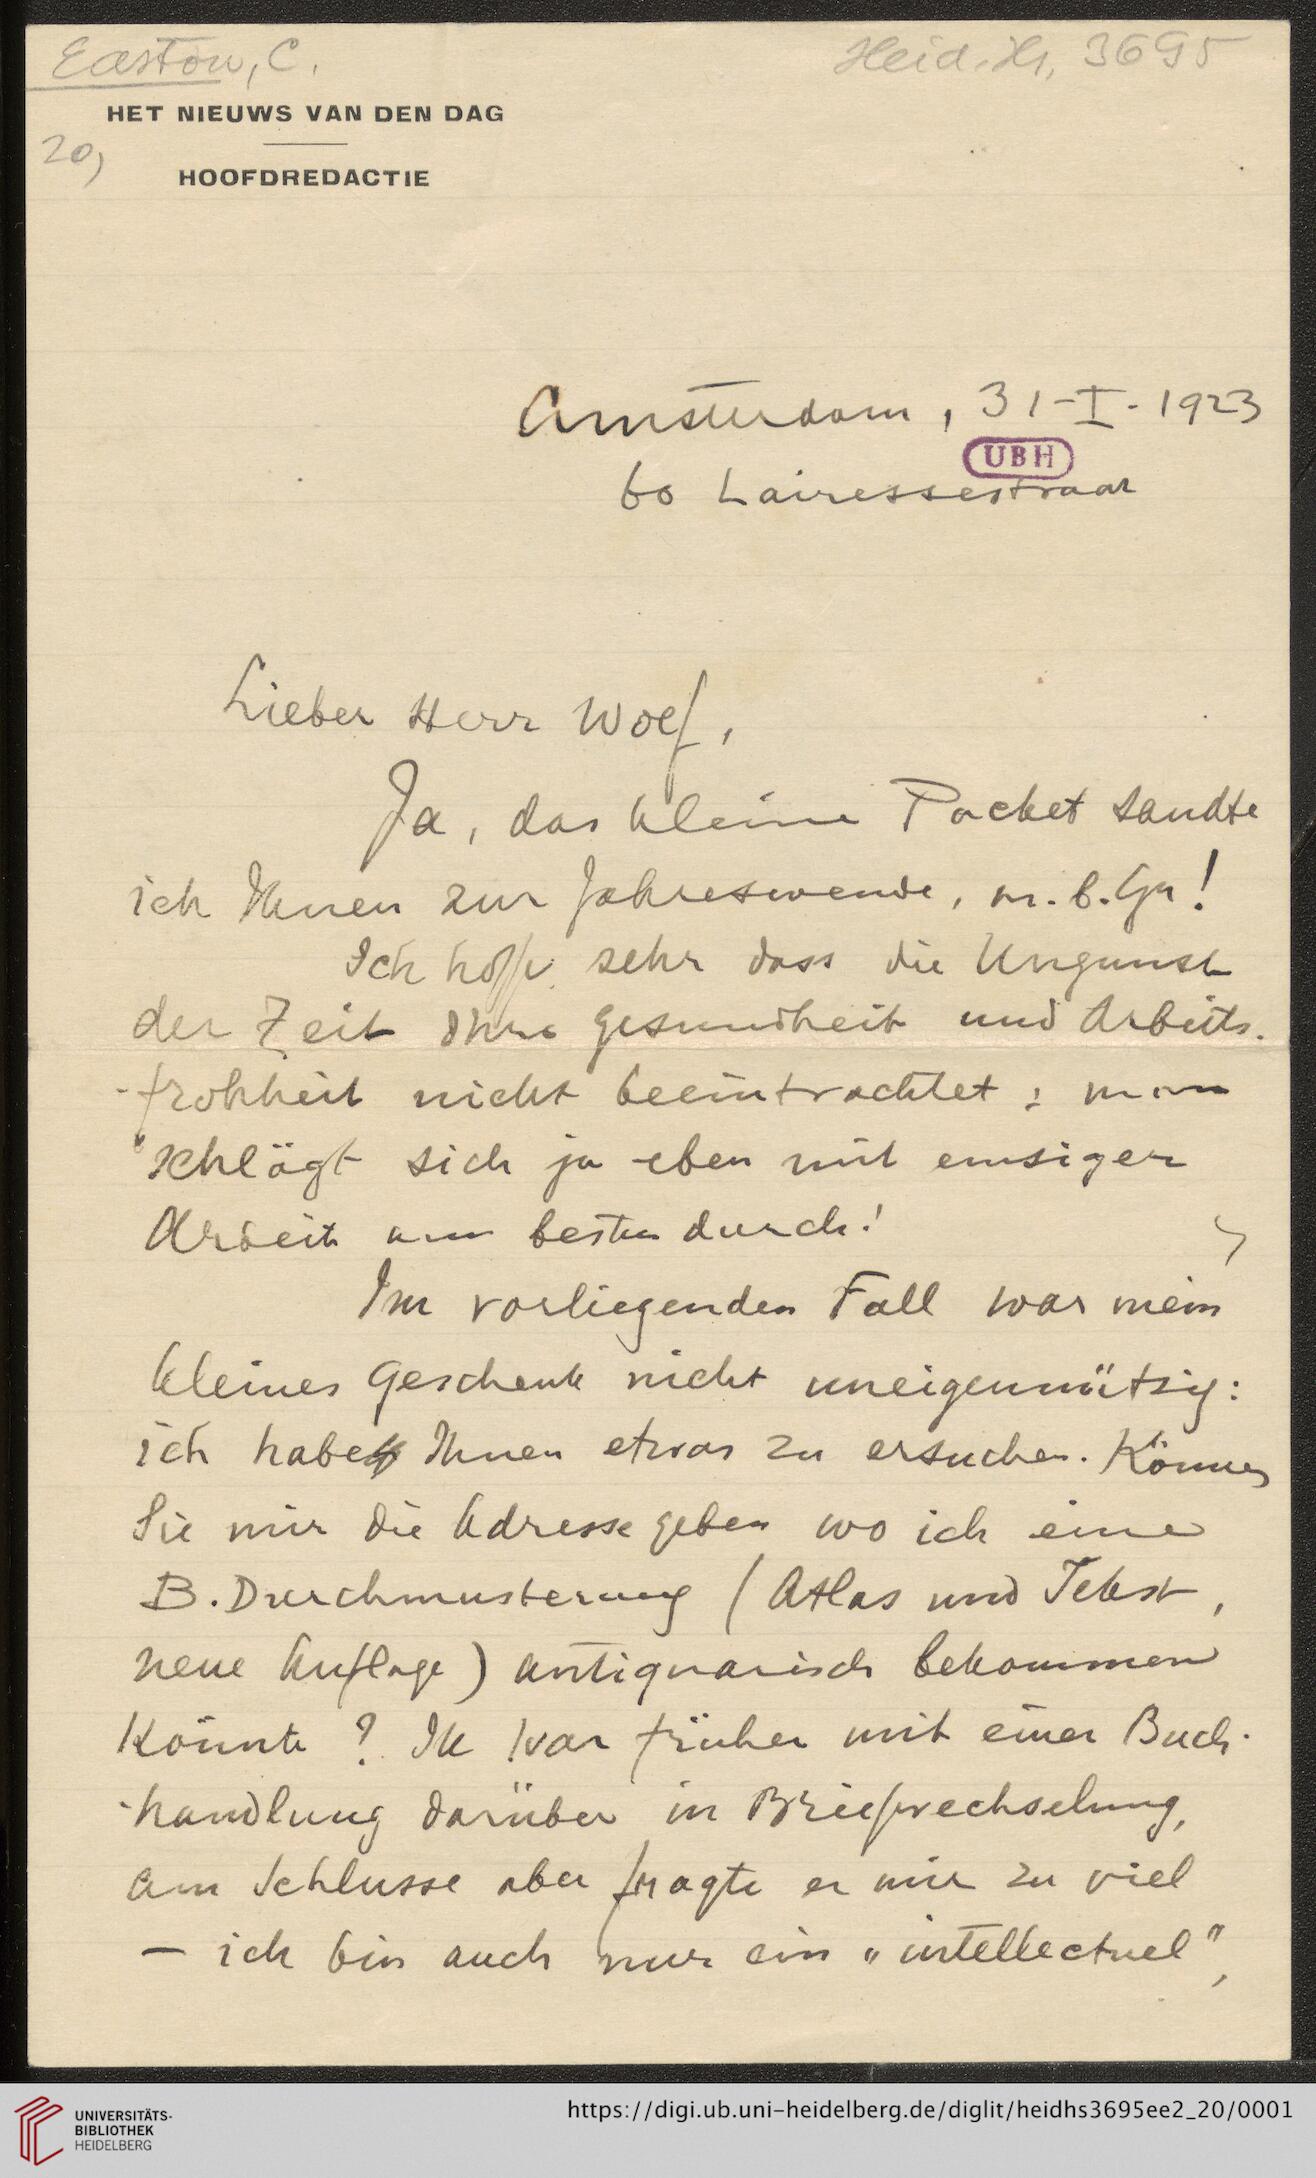 Easton, C.
Heid. Hs. 3695
HET NIEUWS VAN DEN DAG
20,
HOOFDREDACTIE
Amsterdam, 31-I-1923
UBH
60 Lairessestraat
Lieber Herr Wolf,
Ja, das kleine Packet sandte
ich Ihnen zur Jahreswende, m. b. Gr!
Ich hoffe sehr dass die Ungunst
der Zeit Ihre Gesundheit und Arbeits-
-frohheit nicht beeinträchtet; man
schlägt sich ja eben mit emsiger
Arbeit am besten durch!
Im vorliegenden Fall war mein
kleines Geschenk nicht uneigennützig:
ich habe Ihnen etwas zu ersuchen. Können
Sie mir die Adresse geben wo ich eine
B. Durchmusterung (Atlas und Tekst,
neue Auflage) antiquarisch bekommen
könnte? Ik war früher mit einer Buch-
-handlung darüber in Briefwechselung,
am Schlusse aber fragte er mir zu viel
— ich bin auch nur ein „intellectuel",
UNIVERSITÄTS-
BIBLIOTHEK
HEIDELBERG
https://digi.ub.uni-heidelberg.de/diglit/heidhs3695ee2_20/0001